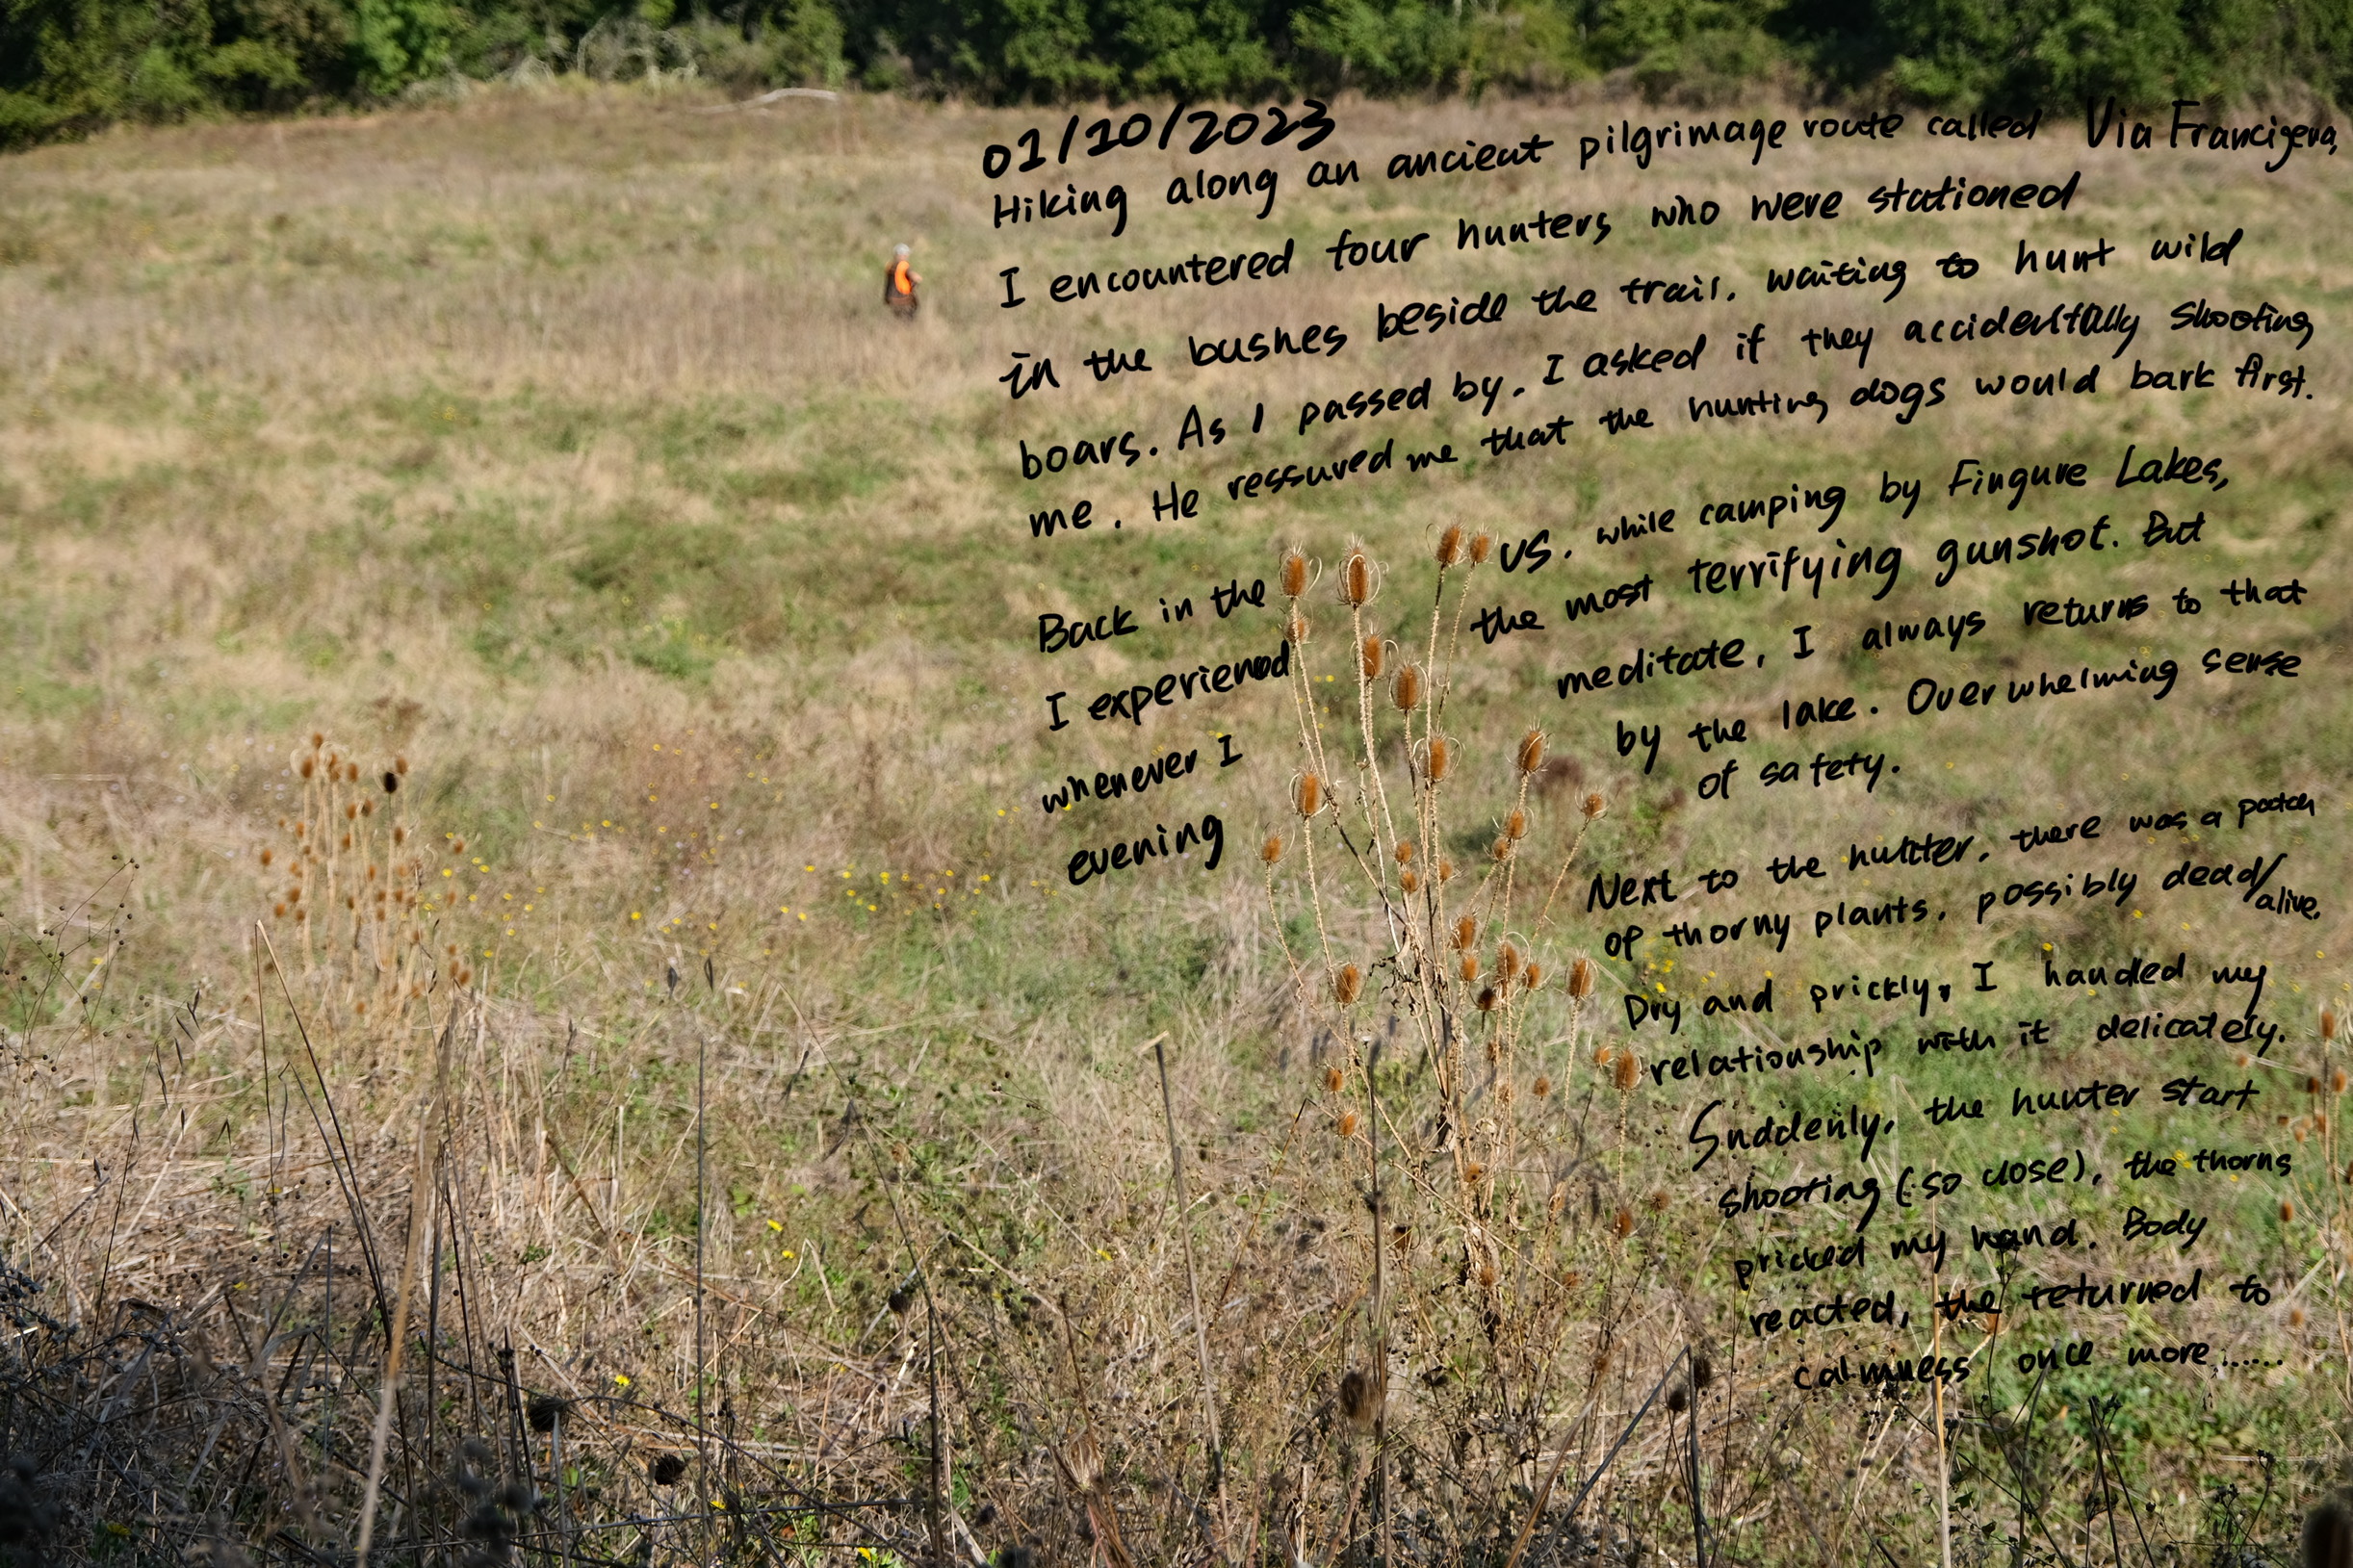 01/10/2023
Hiking along an ancient pilgrimage route called Via Francigena,
I encountered four hunters who were stationed
in the bushes beside the trail, waiting to hunt wild
boars. As I passed by, I asked if they accidentally shooting
me. He ressured me that the hunting dogs would bark first.
Back in the US, while camping by Fingure Lakes,
I experiened the most terrifying gunshot. But
whenever I meditate, I always returns to that
evening by the lake. Overwhelming sense
of safety.
Next to the hunter, there was a patch
of thorny plants, possibly dead/alive.
Dry and prickly, I handed my
relationship with it delicately.
Suddenly, the hunter start
shooting (so close), the thorns
pricked my hand. Body
reacted, the returned to
calmness once more......